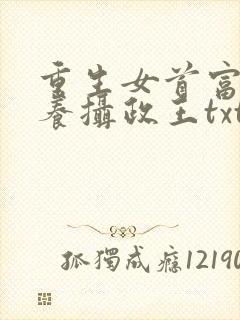 重生女首富
養攝政王txt
孤獨成癮12190